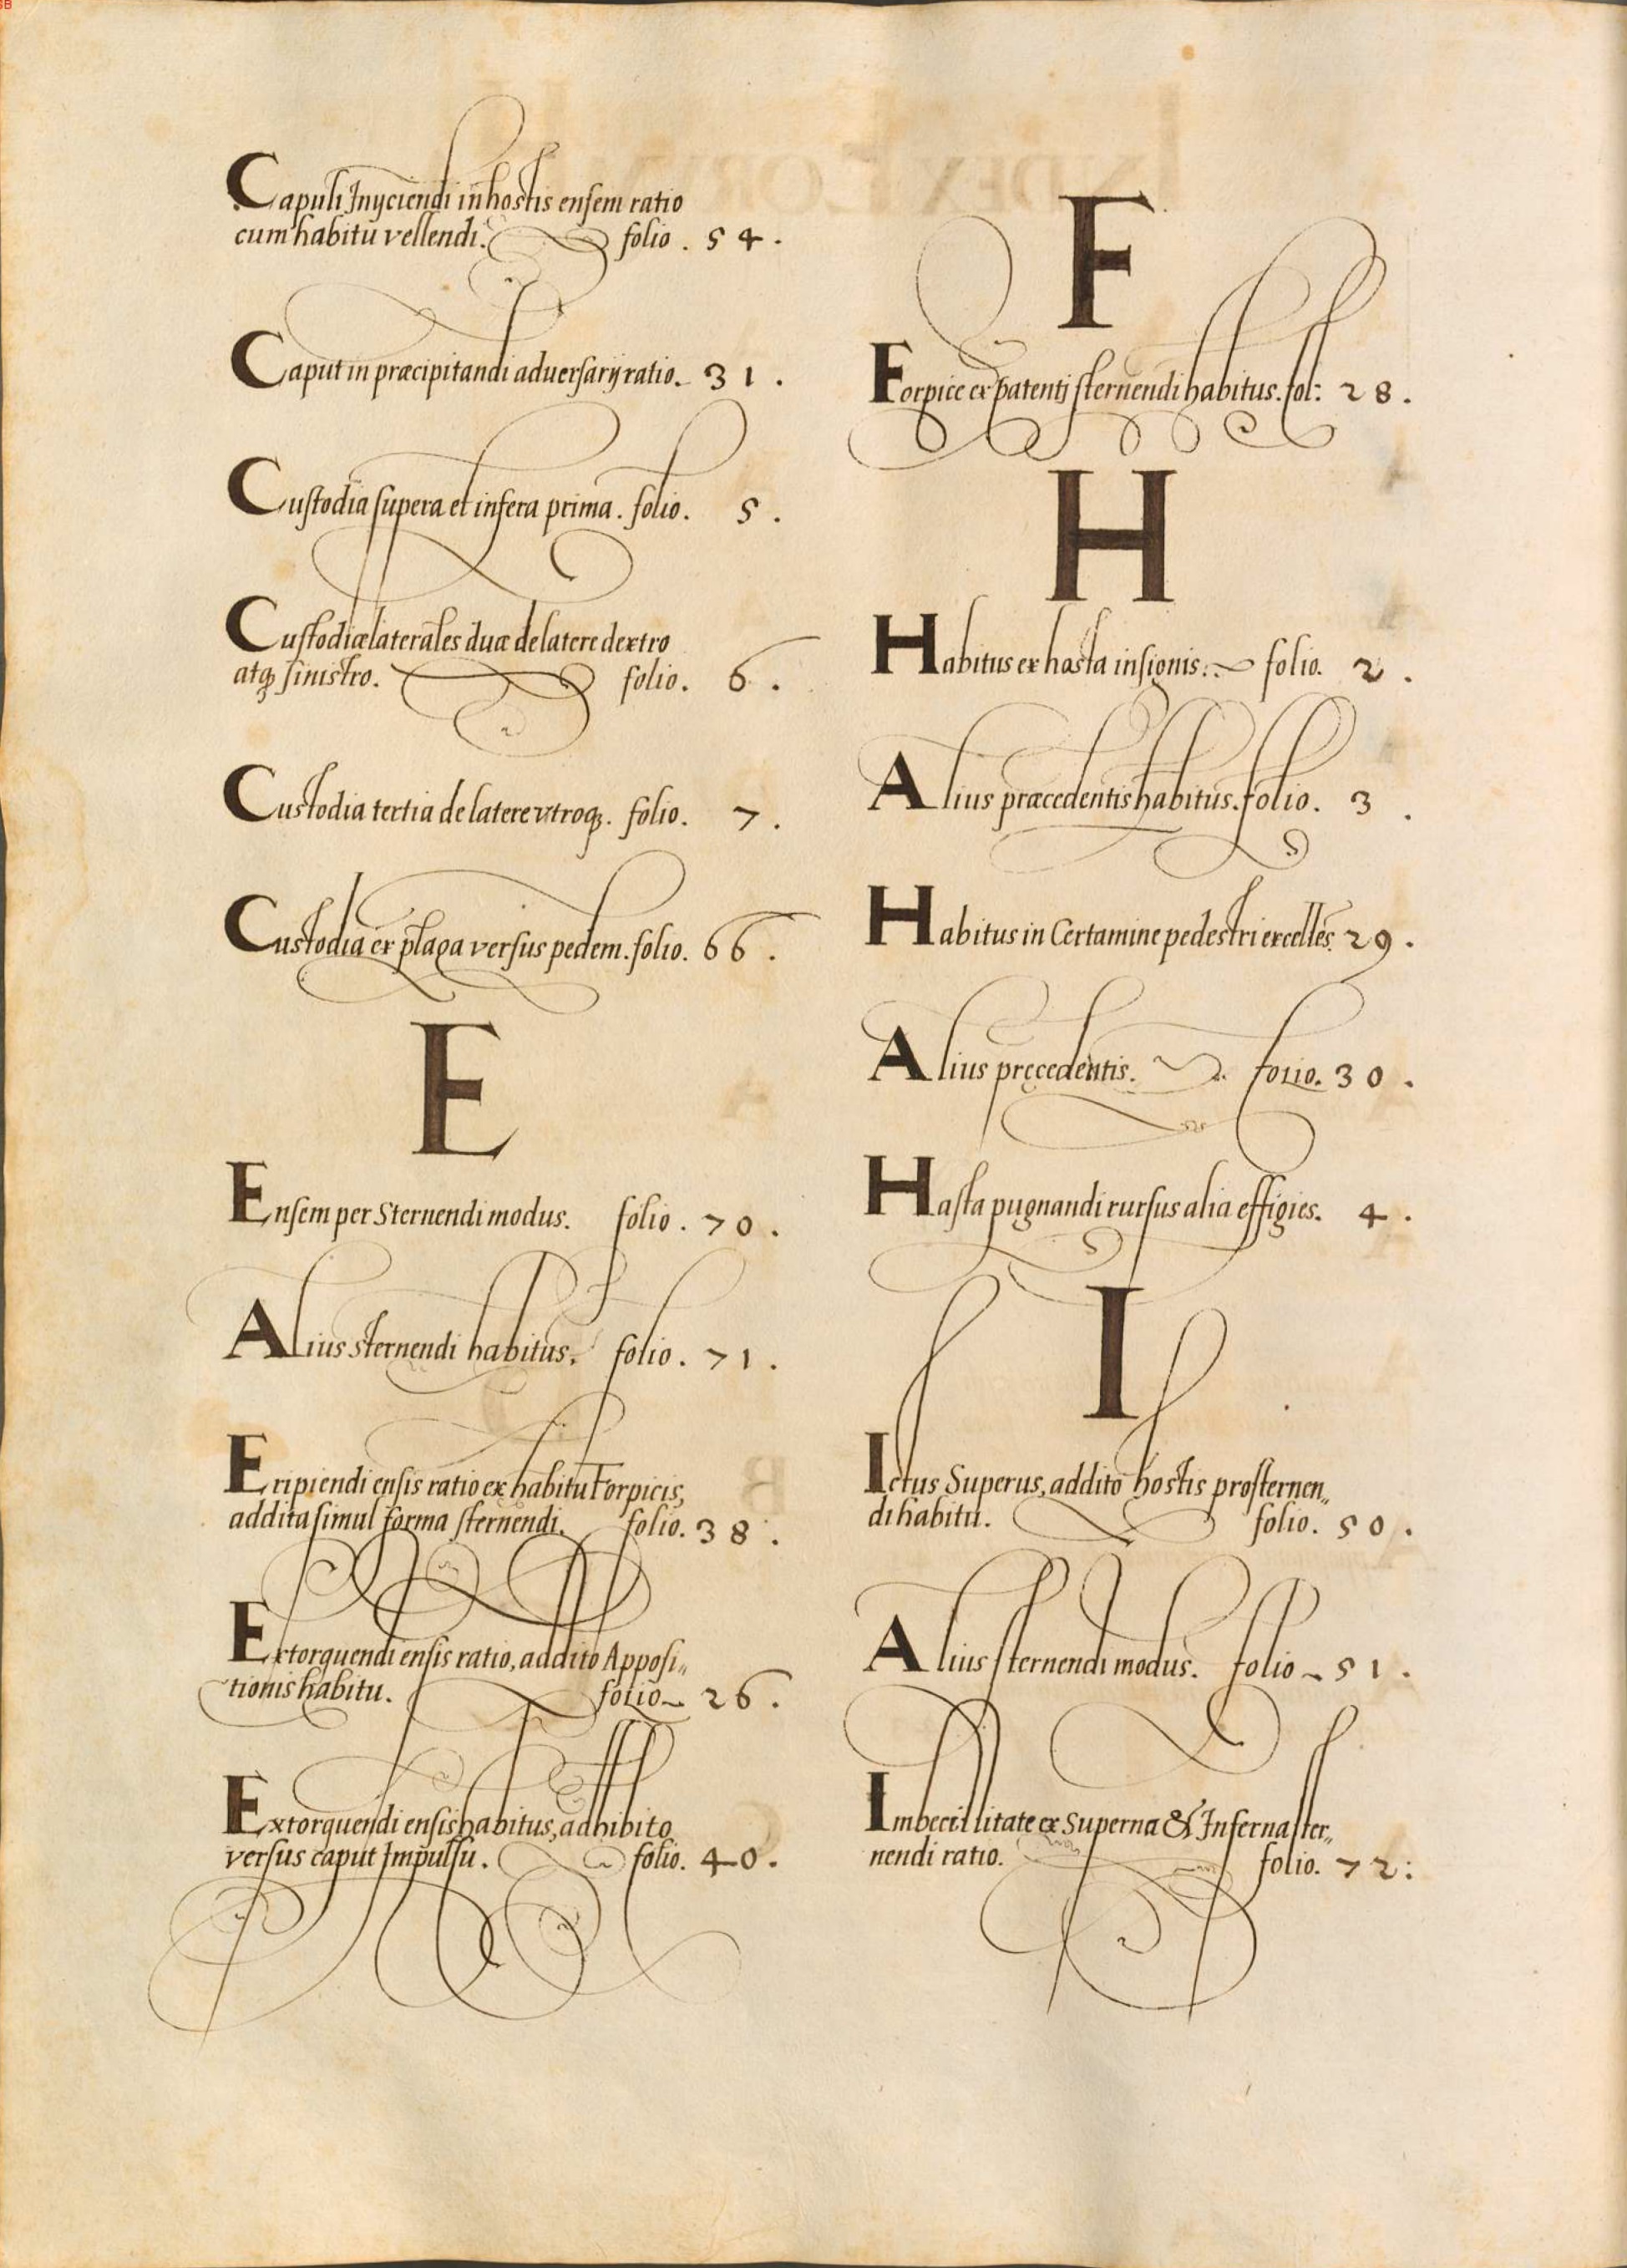 Capuli Jnyciendi in hostis ensem ratio
cum habitu vellendi. folio . 54.
Caput in præcipitandi aduersarij ratio. 31.
Custodia supera et infera prima. folio. 5.
Custodiæ laterales duæ de latere dextro
atq sinistro. folio. 6.
Custodia tertia de latere vtroq. folio. 7.
Custodia ex plaga versus pedem. folio. 66.
E
Ensem per Sternendi modus. folio. 70.
Alius sternendi habitus. folio. 71.
Eripiendi ensis ratio ex habitu Forpicis,
addita simul forma sternendi. folio. 38.
Extorquendi ensis ratio, addito Apposi„
tionis habitu. folio 26.
Extorquendi ensis habitus, adhibito
versus caput Jmpulsu. folio. 40.
F
Forpice ex patenti sternendi habitus. fol: 28.
H
Habitus ex hasta insignis. folio. 2.
Alius præcedentis habitus. folio. 3.
Habitus in Certamine pedestri excellēs. 29.
Alius pręcedentis. folio. 30.
Hasta pugnandi rursus alia effigies. 4.
I
Ictus Superus, addito hostis prosternen„
di habitu. folio. 50.
Alius sternendi modus. folio 51.
Imbecillitate ex Superna & Jnferna ster„
nendi ratio. folio. 72: